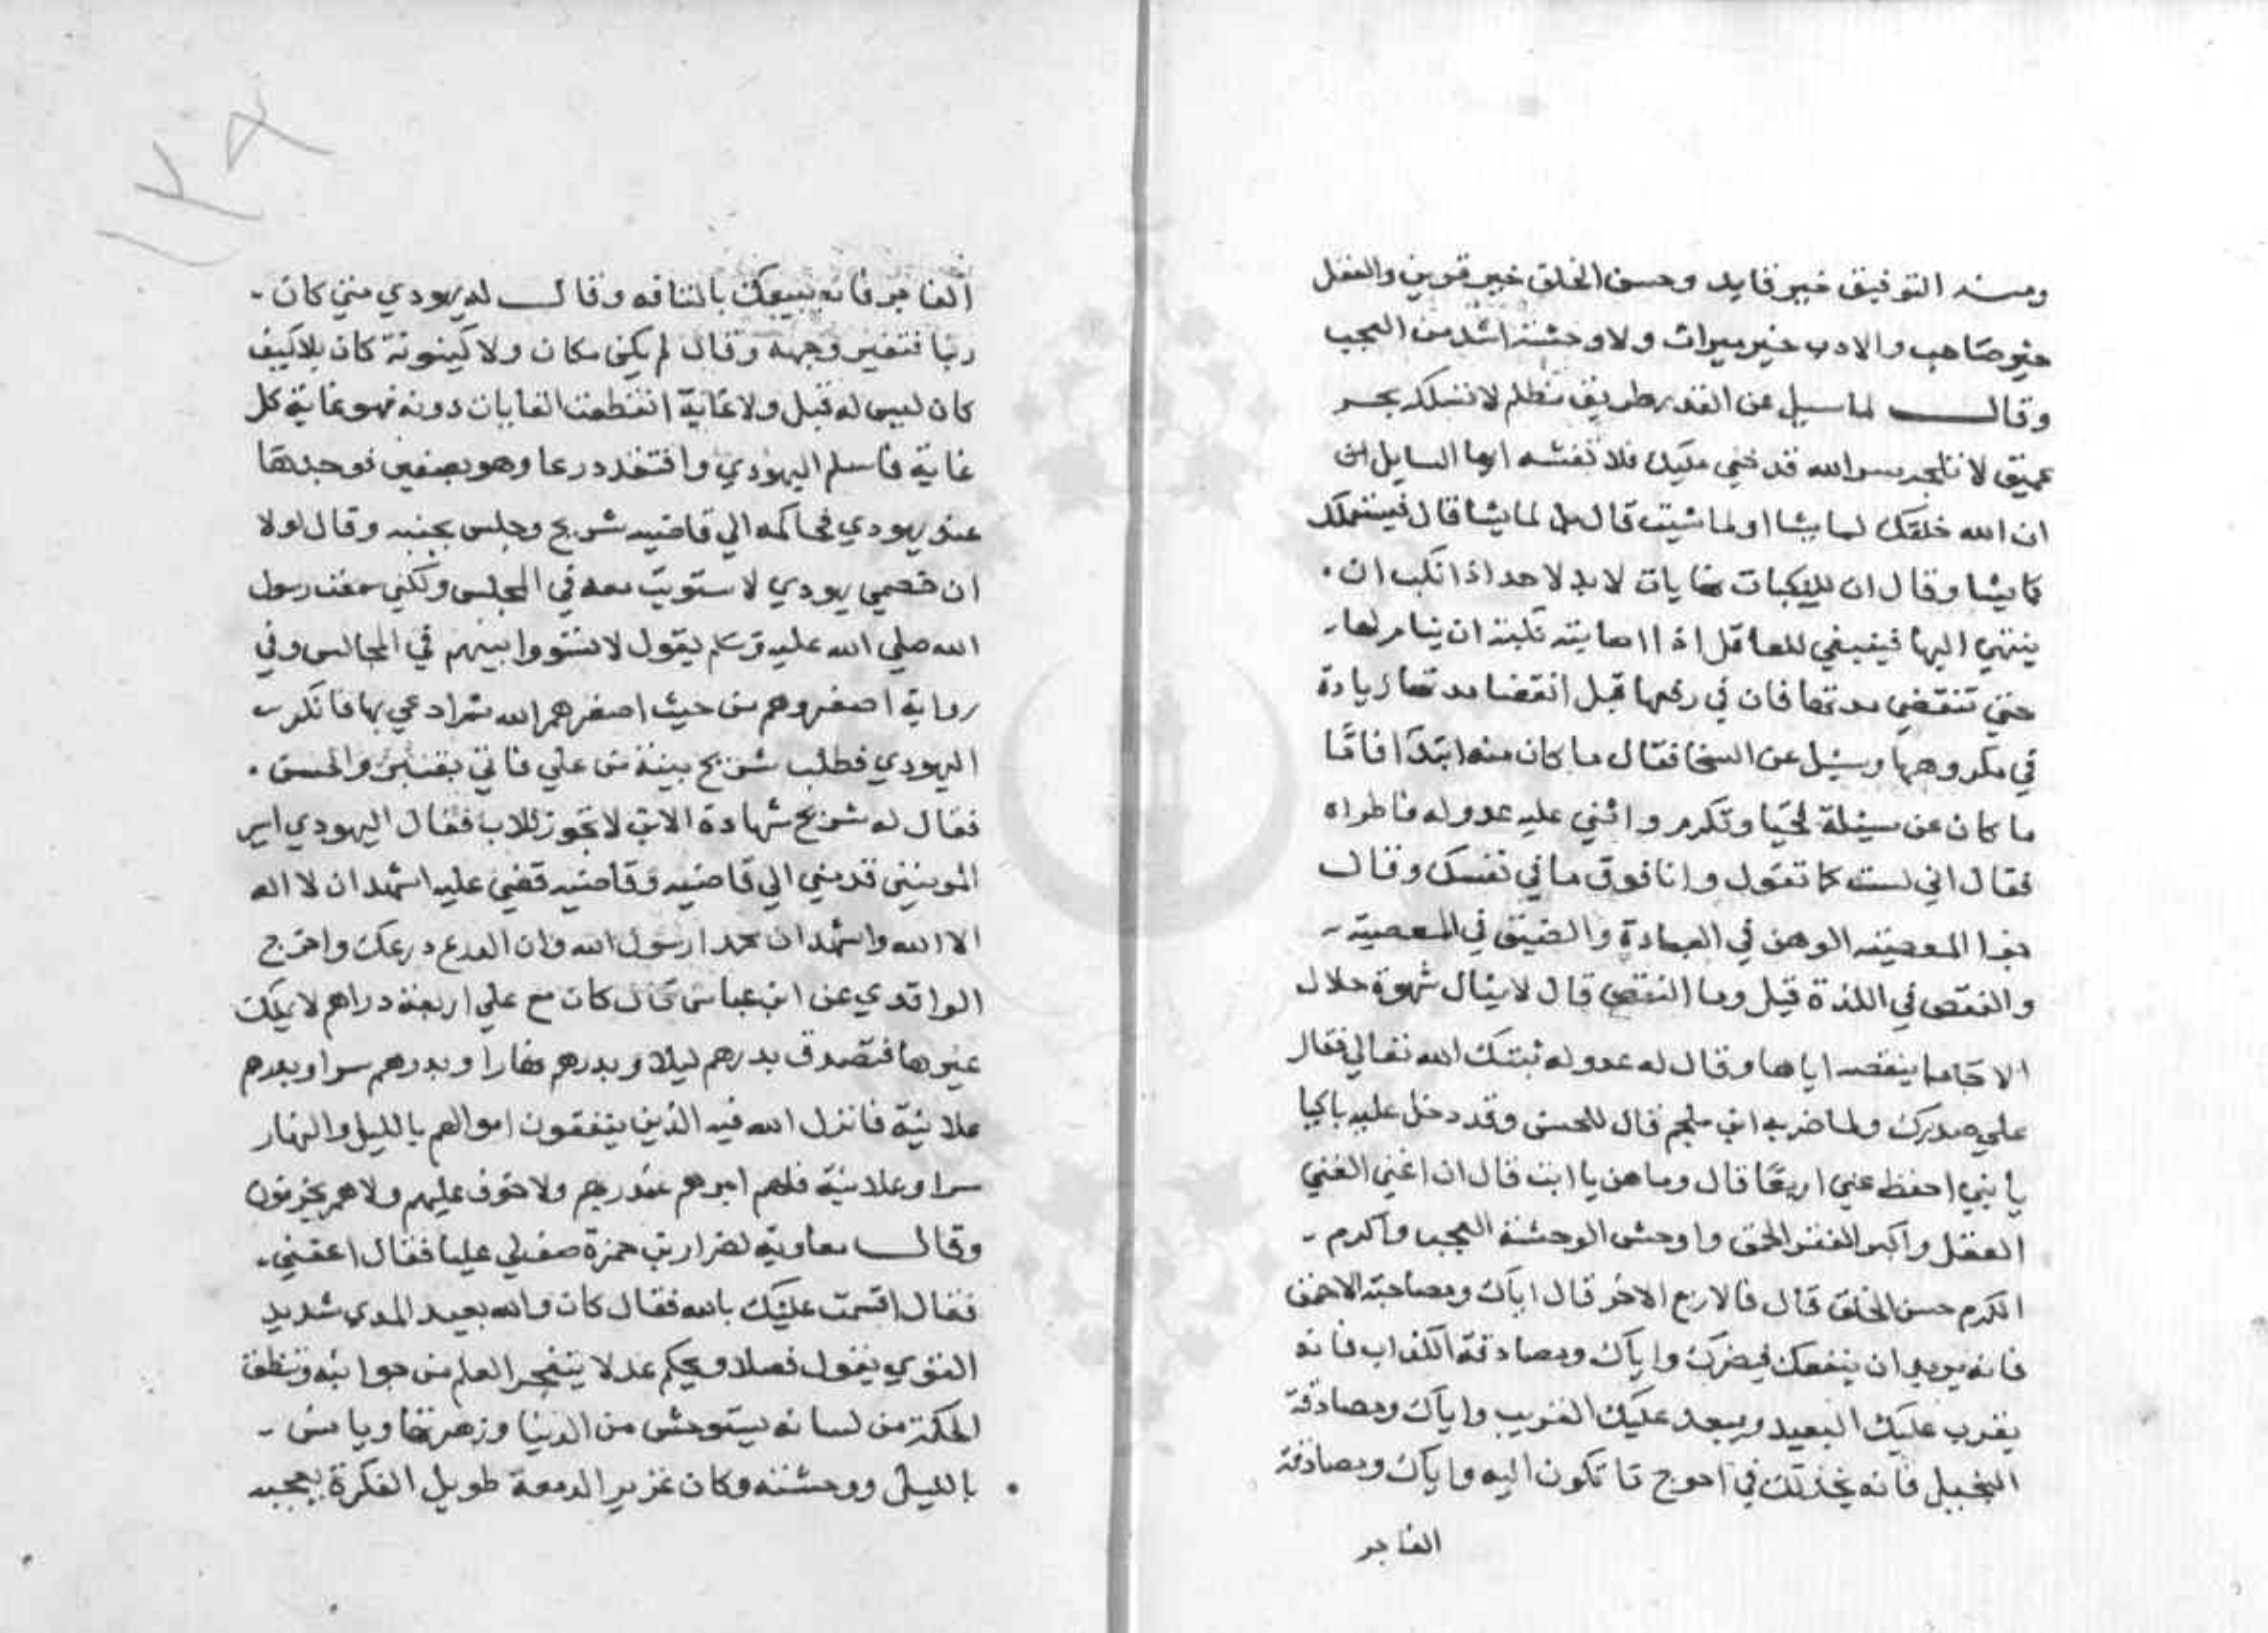 ومنه التوفيق خير قايد وحسن الخلق خير قرين والعقل
خير صاحب والادب خير ميراث ولا وحشة اشد من العجب
وقال لما سيل عن القدر طريق مظلم لا تسلكه بحر
عميق لا تلجه سر الله قد خفي عليك فلا تفشه ايها السايل ان
ان الله خلقك لما يشا او لما شيت قال بل لما يشا قال فيستعملك
كما يشا وقال ان للنكبات نهايات لا بد لاحد اذا نكب ان
ينتهي اليها فينبغي للعاقل اذا اصابته نكبة ان ينام لها
حتي تنقضي مدتها فان في رفعها قبل انقضا مدتها زيادة
في مكروهها وسيل عن السخا فقال ما كان منه ابتدا فاما
ما كان عن مسيلة فحيا وتكرم واثني عليه عدو له فاطراه
فقال اني لست كما تقول وانا فوق ما في نفسك وقال
جزا المعصية الوهن في العبادة والضيق في المعيشة
والنقص في اللذة قيل وما النقص قال لا ينال شهوة حلال
الا جا ما ينقصه اياها وقال له عدو له ثبتك الله تعالي فقال
علي صدرك ولما ضربه ابن ملجم قال للحسن وقد دخل عليه باكيا
يا بني احفظ عني اربعا قال وما هن يا ابت قال ان اغني الغني
العقل واكبر الفقر الحمق واوحش الوحشة العجب واكرم
الكرم حسن الخلق قال فالاربع الاخر قال اياك ومصاحبة الاحمق
فانه يريد ان ينفعك فيضرك واياك ومصادقة الكذاب فانه
يقرب عليك البعيد ويبعد عليك القريب واياك ومصادقة
البخيل فانه يخذلك في احوج ما تكون اليه واياك ومصادقة
الفاجر
١٢٨
الفاجر فانه يبيعك بالتافه وقال له يهودي متي كان
ربنا فتغير وجهه وقال لم يكن مكان ولا كينونة كان بلا كيف
كان ليس له قبل ولا غاية انقطعت الغايات دونه فهو غاية كل
غاية فاسلم اليهودي وافتقد درعا وهو بصفين فوجدها
عند يهودي فحاكمه الي قاضيه شريح وجلس بجنبه وقال لولا
ان خصمي يهودي لاستويت معه في المجلس ولكني سمعت رسول
الله صلي الله عليه وسلم يقول لا تستووا بينهم في المجالس وفي
رواية اصغروهم من حيث اصغرهم الله ثم ادعي بها فانكر
اليهودي فطلب شريح بينة من علي فاتي بقنبر والحسن
فقال له شريح شهادة الابن لا تجوز للاب فقال اليهودي امير
المومنين قدمني الي قاضيه وقاضيه قضي عليه اشهد ان لا اله
الا الله واشهد ان محمدا رسول الله وان الدرع درعك واخرج
الواقدي عن ابن عباس قال كان مع علي اربعة دراهم لا يملك
غيرها فتصدق بدرهم ليلا وبدرهم نهارا وبدرهم سرا وبدرهم
علانية فانزل الله فيه الذين ينفقون اموالهم بالليل والنهار
سرا وعلانية فلهم اجرهم عند ربهم ولا خوف عليهم ولا هم يحزنون
وقال معاوية لضرار بن حمزة صف لي عليا فقال اعفني
فقال اقسمت عليك بالله فقال كان والله بعيد المدي شديد
القوي يقول فصلا ويحكم عدلا يتفجر العلم من جوانبه وتنطق
الحكمة من لسانه يستوحش من الدنيا وزهرتها ويانس
بالليل ووحشته وكان غزير الدمعة طويل الفكرة يعجبه